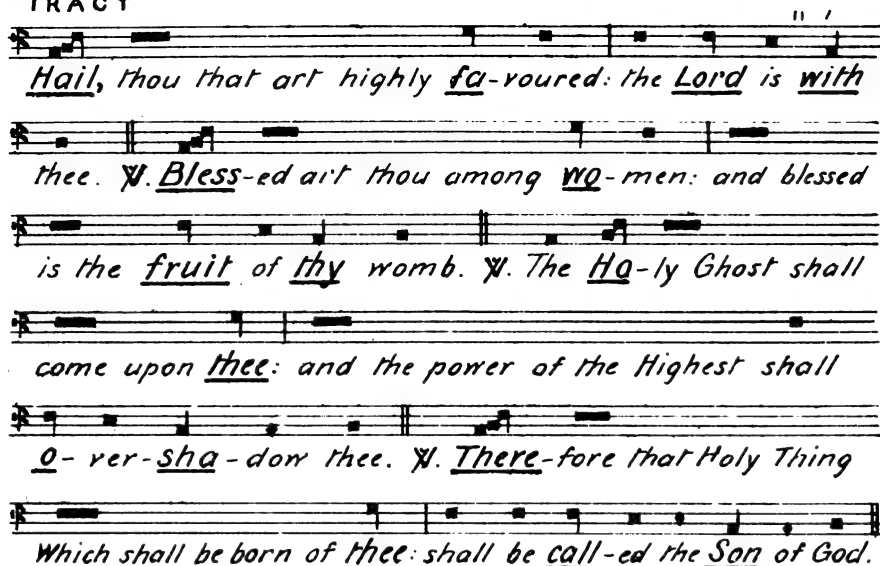 TRACT
Hail, thou that art highly fa-voured: the Lord is with
thee. ℣. Bless-ed art thou among wo-men: and blessed
is the fruit of thy womb. ℣. The Ho-ly Ghost shall
come upon thee: and the power of the Highest shall
o-ver-sha-dow thee. ℣. There-fore that Holy Thing
Which shall be born of thee: shall be call-ed the Son of God.